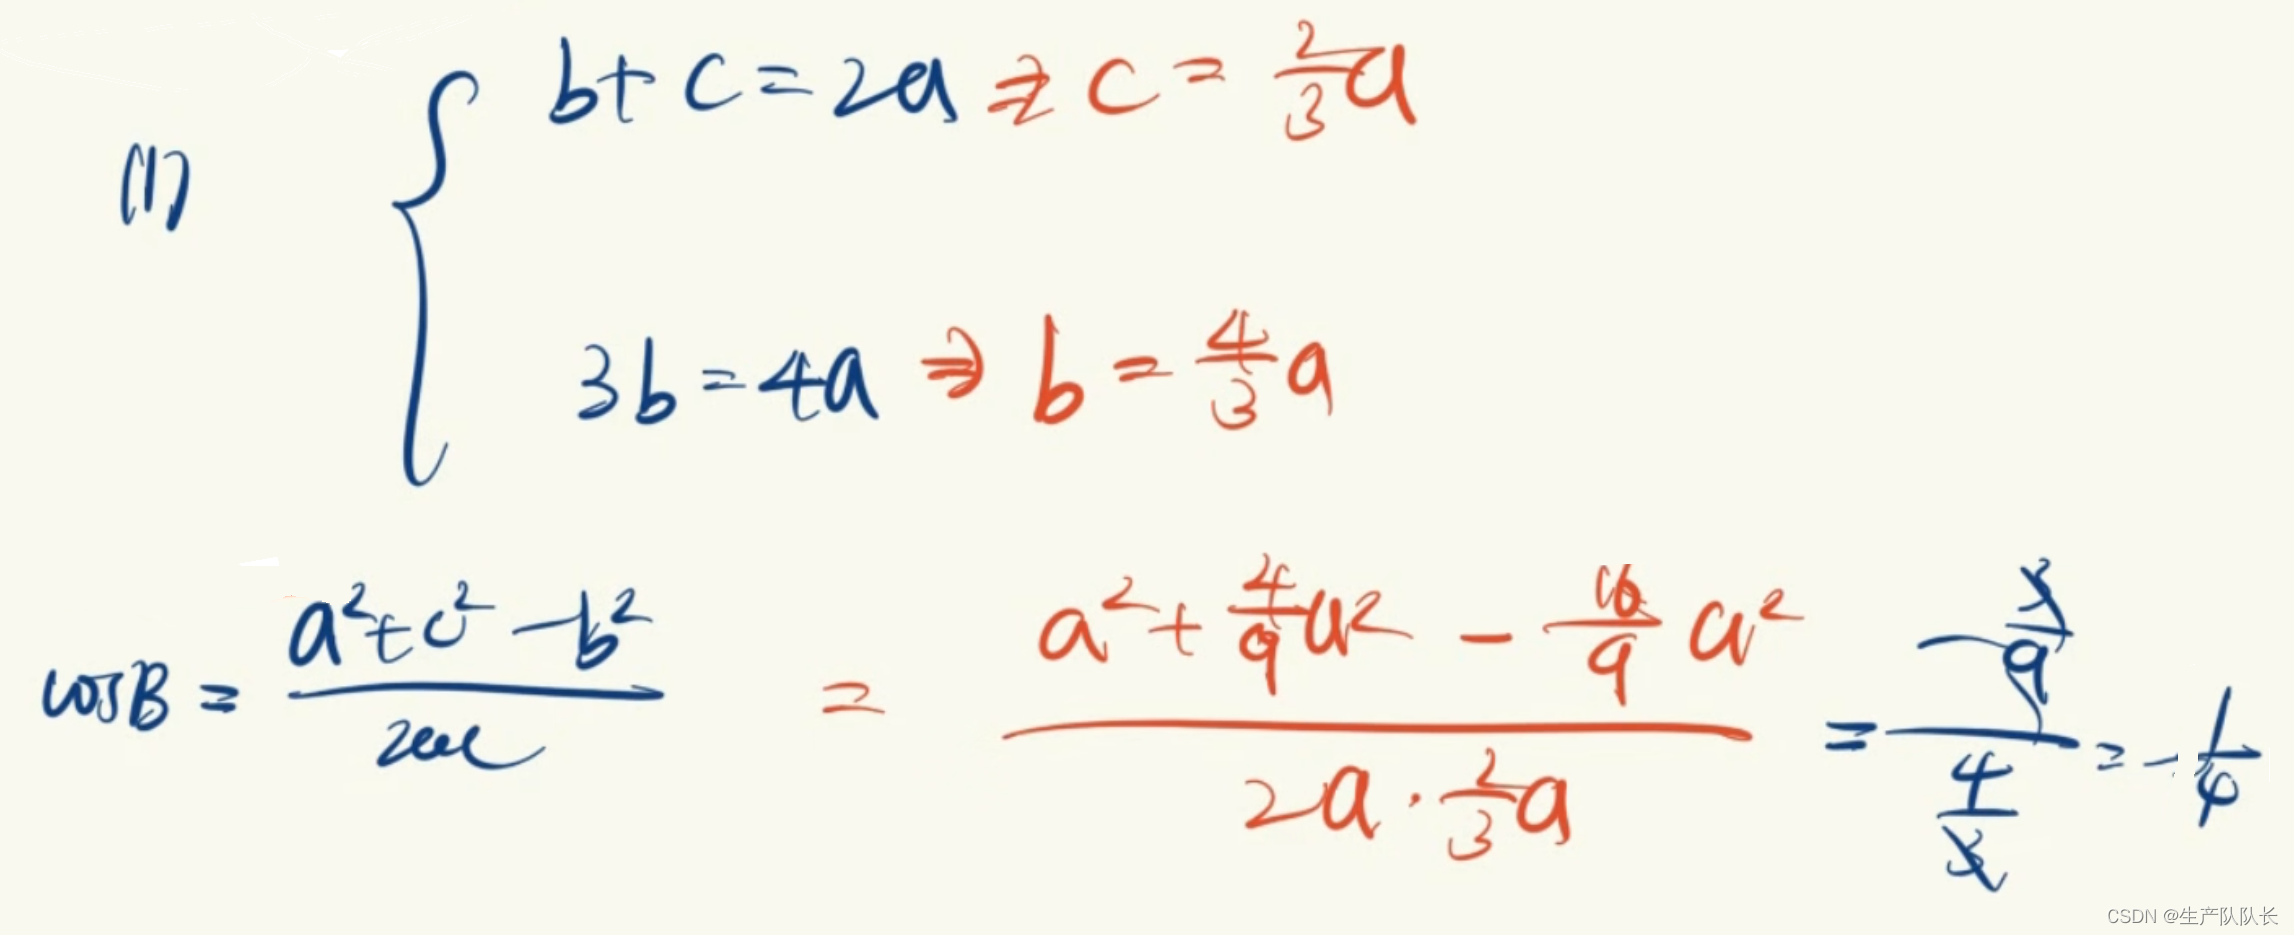 (1)
b + c = 2a ⇒ c = 2/3 a
3b = 4a ⇒ b = 4/3 a
cosB = (a² + c² - b²) / 2ac = (a² + 4/9 a² - 16/9 a²) / (2a · 2/3 a) = (-3/9) / (4/3) = -1/4
CSDN @生产队队长